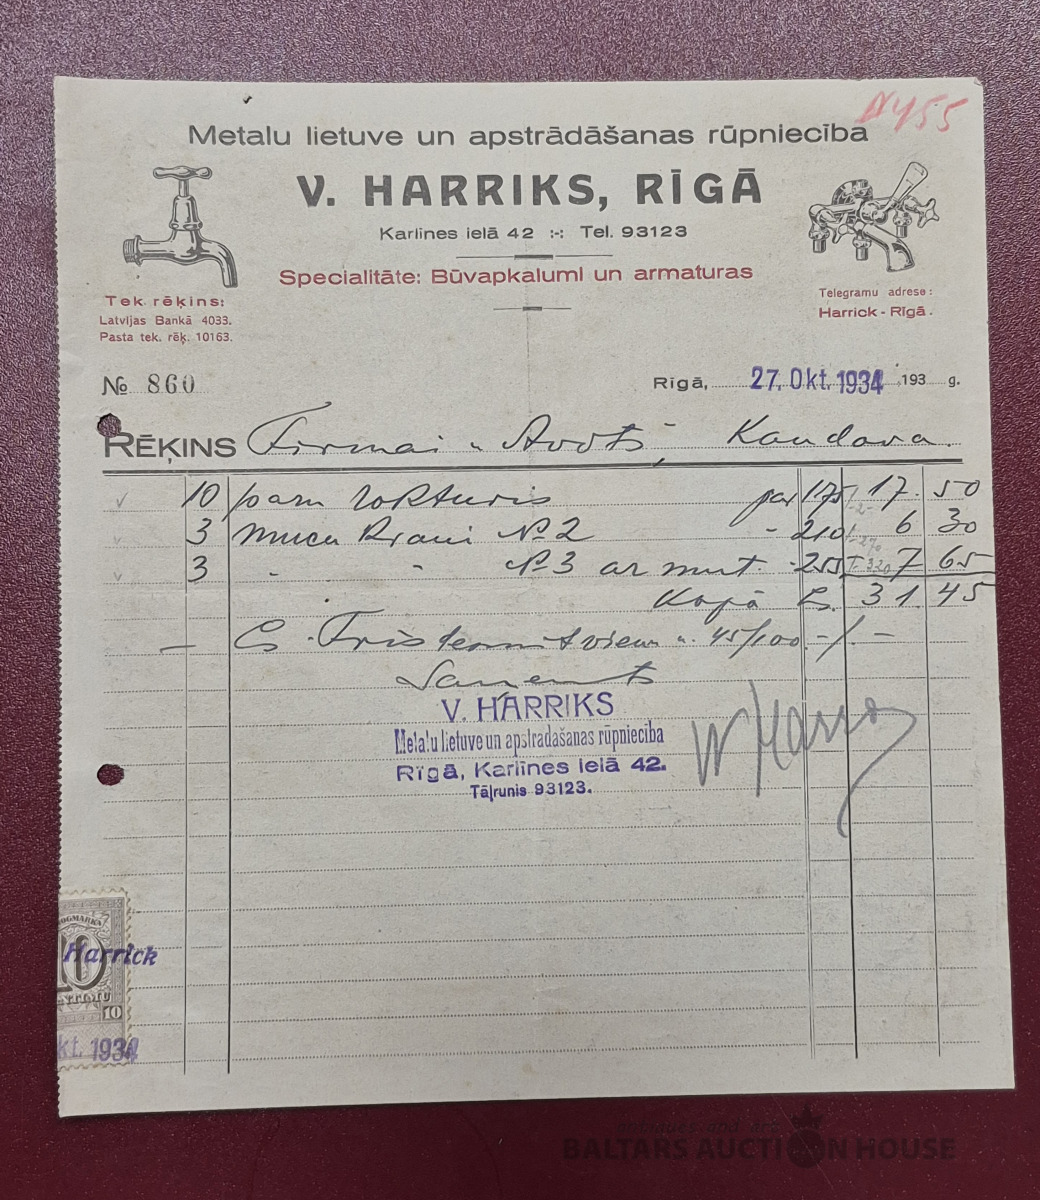 №455
Metalu lietuve un apstrādāšanas rūpniecība
V. HARRIKS, RĪGĀ
Karlīnes ielā 42 :-: Tel. 93123
Specialitāte: Būvapkalumi un armaturas
Tek. rēķins:
Latvijas Bankā 4033.
Pasta tek. rēķ. 10163.
Telegramu adrese:
Harrick - Rīgā.
№ 860
Rīgā, 27. Okt. 1934 193 g.
RĒĶINS Firmai "Avots", Kandava.
10 pāri rokturis par 1.75 17. 50
3 mucu krani № 2 " 2.10 6 30
3 " " № 3 ar mut. 2.55 7 65
Kopā Ls. 31. 45
— Ls. Trīsdesmit viens u. 45/100 -/. —
Saņemts
V. HARRIKS
Metalu lietuve un apstrādāšanas rūpniecība
Rīgā, Karlīnes ielā 42.
Tālrunis 93123.
10
Harrick
10
kt. 1934
antiques and art
BALTARS AUCTION HOUSE